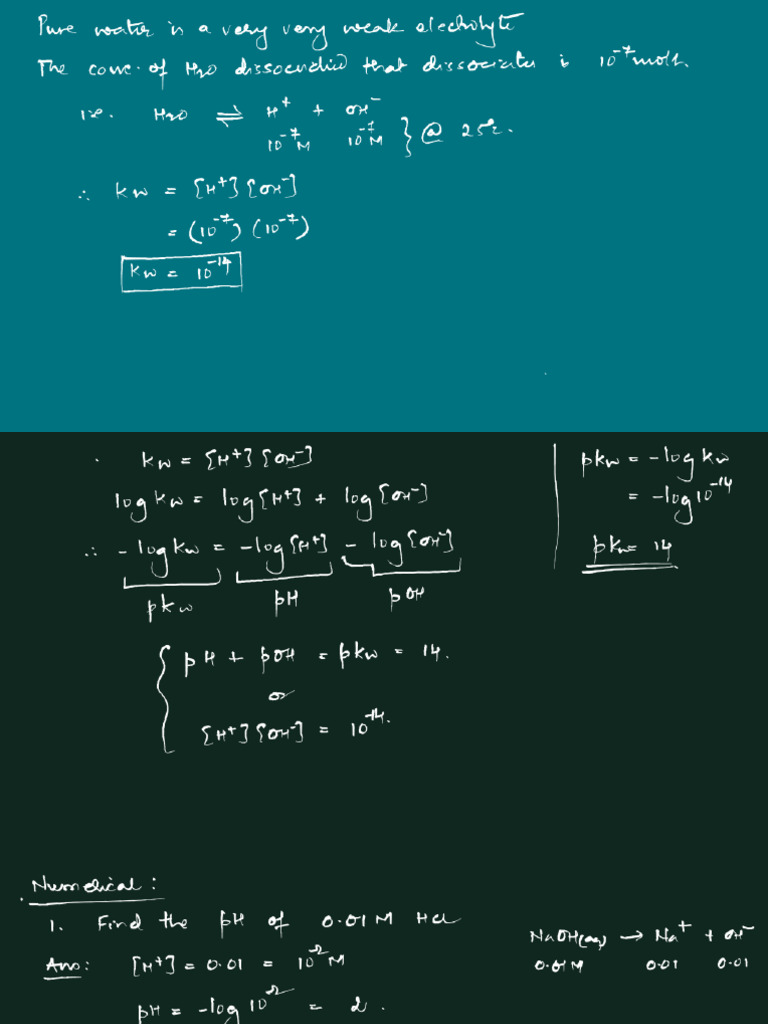 Pure water is a very very weak electrolyte
The conc. of H2O dissociated that dissociates is 10^-7 mol/lt.
i.e. H2O ⇌ H^+ + OH^-
10^-7 M 10^-7 M } @ 25°c.
∴ Kw = [H^+] [OH^-]
= (10^-7) (10^-7)
Kw = 10^-14
Kw = [H^+] [OH^-]
log Kw = log [H^+] + log [OH^-]
∴ -log Kw = -log [H^+] - log [OH^-]
pKw pH pOH
pKw = -log Kw
= -log 10^-14
pKw = 14
pH + pOH = pKw = 14.
or
[H^+] [OH^-] = 10^-14.
Numerical :
1. Find the pH of 0.01 M HCl
Ans: [H^+] = 0.01 = 10^-2 M
pH = -log 10^-2 = 2.
NaOH(aq) → Na^+ + OH^-
0.01M 0.01 0.01